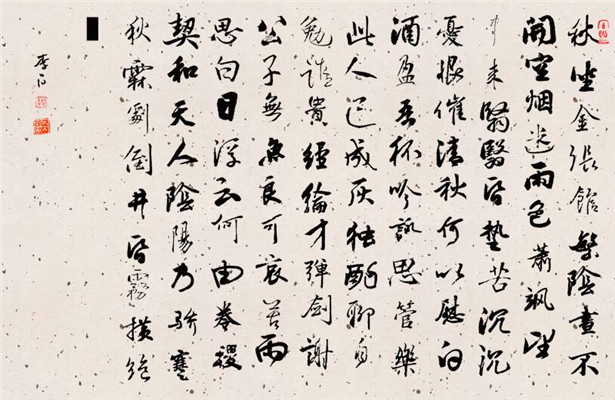 秋坐金張館繁陰晝不
開空烟迷雨色蕭颯望
中来翳翳昏墊苦沉沉
憂恨催清秋何以慰白
酒盈吾杯吟詠思管樂
此人已成灰独酌聊自
勉誰貴經綸才弹劍謝
公子無魚良可哀苦雨
思白日浮云何由卷稷
契和天人陰陽乃骄蹇
秋霖劇倒井昏霧横絶
李白